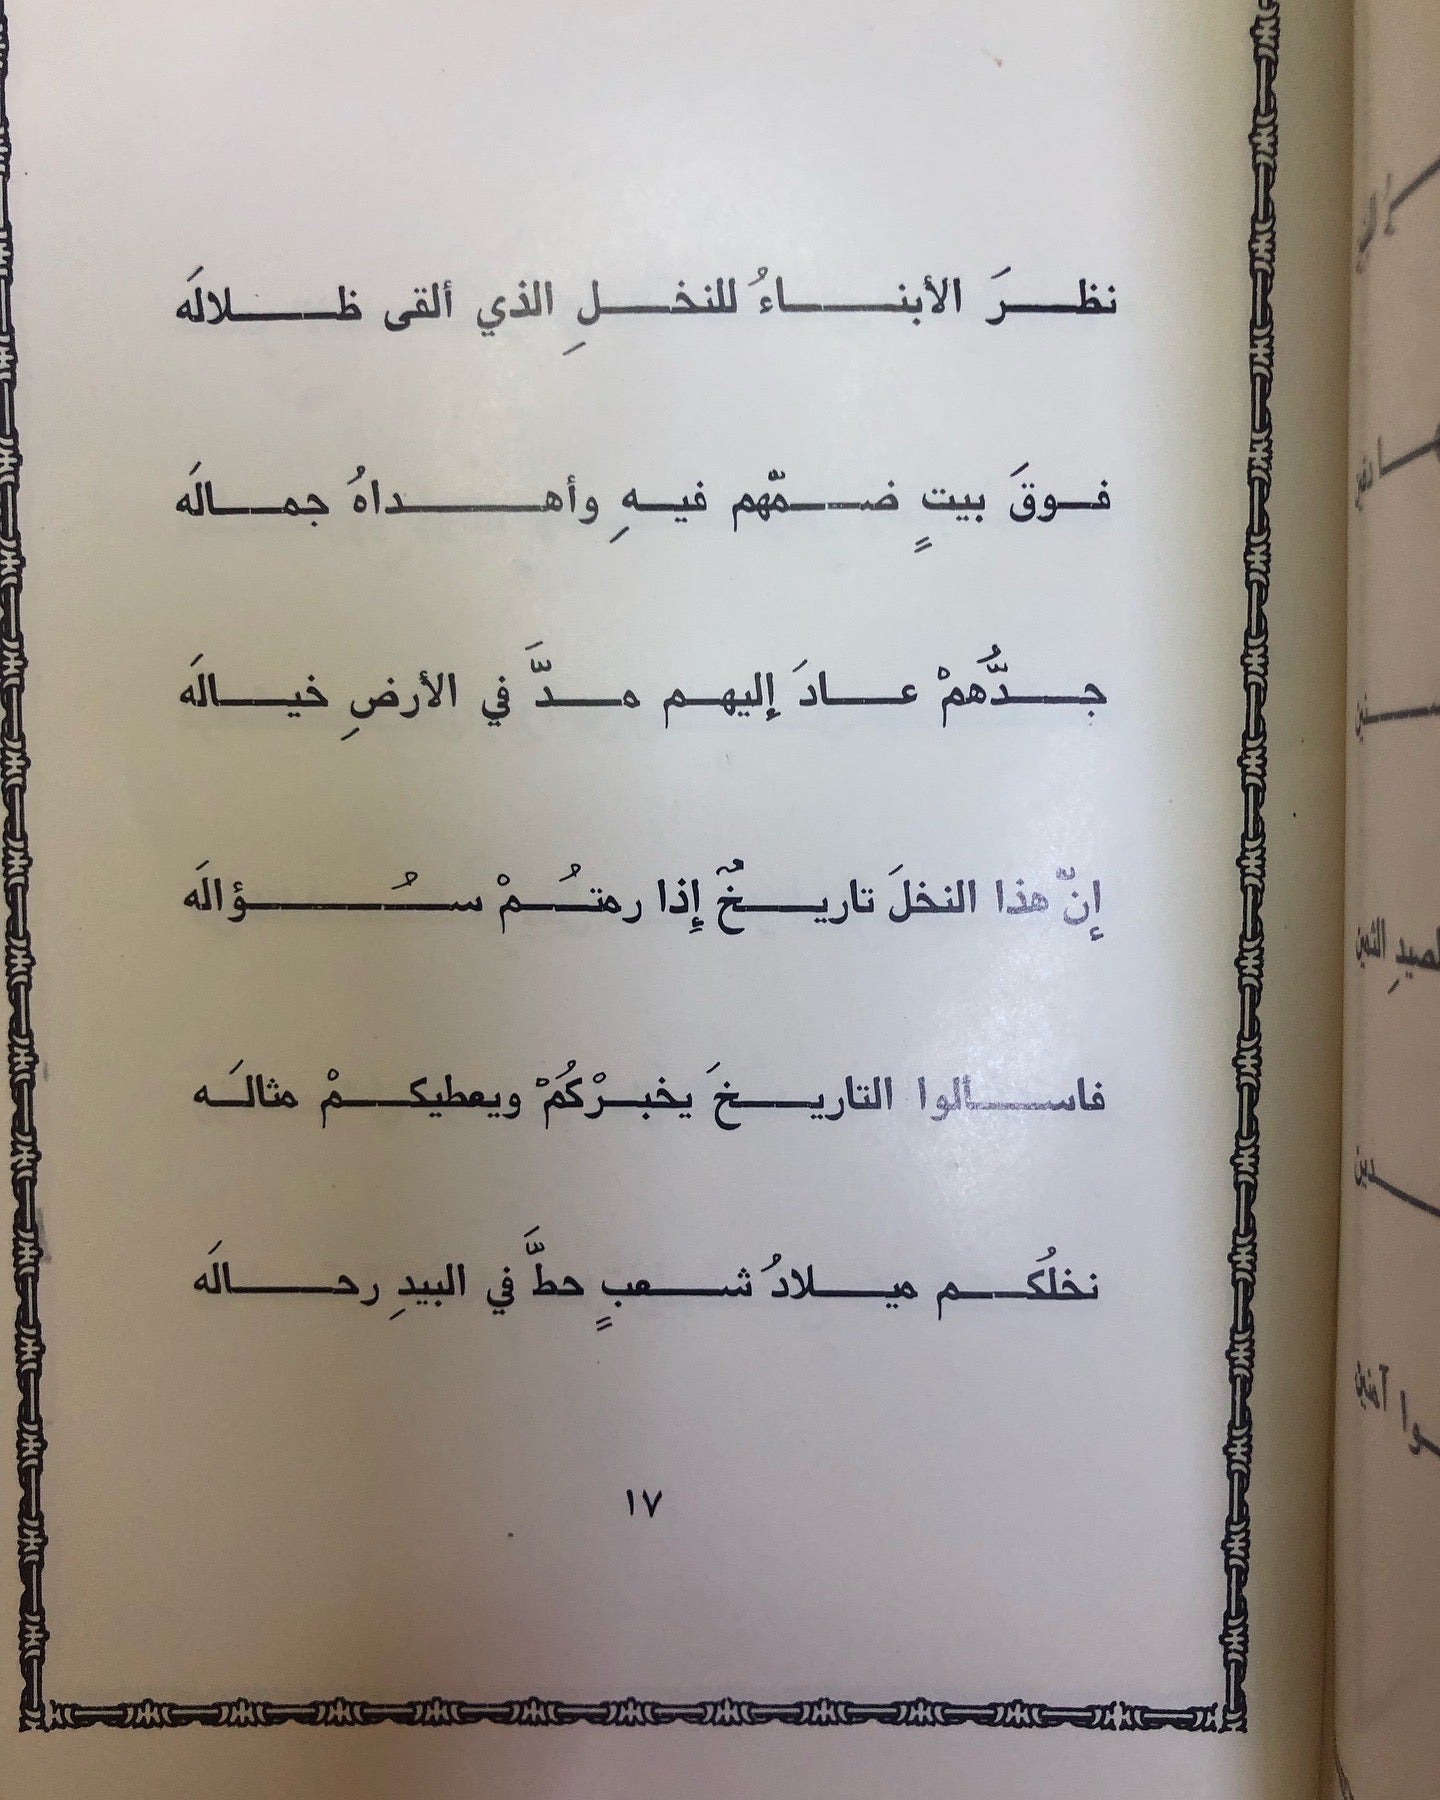 نظرَ الأبناءُ للنخلِ الذي ألقى ظلالَه
فوقَ بيتٍ ضمّهم فيهِ وأهداهُ جمالَه
جدُّهمْ عادَ إليهم مدَّ في الأرضِ خيالَه
إنّ هذا النخلَ تاريخٌ إذا رمتُمْ سُؤالَه
فاسألوا التاريخَ يخبرْكُمْ ويعطيكمْ مثالَه
نخلُكم ميلادُ شعبٍ حطَّ في البيدِ رحالَه
١٧
لصيدِ الثمين